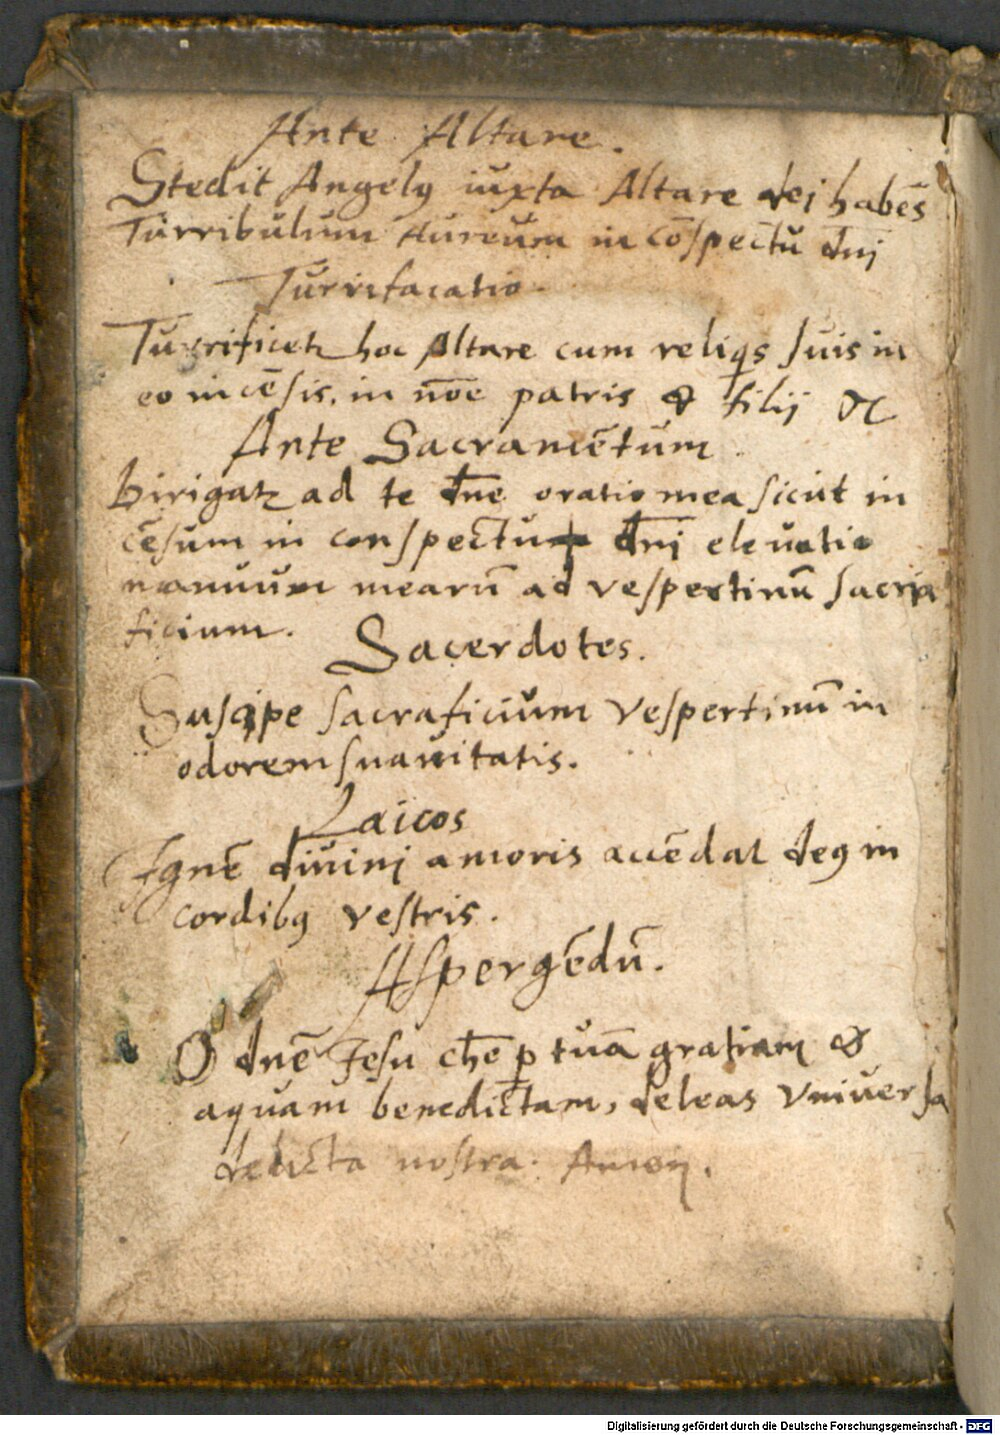 Ante Altare.
Stedit Angelꝰ iuxta Altare dej habēs
Turribulum Aureum in cōspectu dn̄j
Turrifacatio.
Turrificetꝛ hoc Altare cum reliqis suis in
eo incēsis, in nōe patris & filij &c
Ante Sacramētum.
Dirigatꝛ ad te dn̄e oratio mea sicut in
cēsum in conspectu dn̄j elevatio
manuum mearū ad vespertinū sacri
ficium.
Sacerdotes.
Suscipe sacraficium vespertinū in
odorem suavitatis.
Laicos
Ignē divinj amoris accēdat deꝰ in
cordibꝰ vestris.
Aspergēdū.
O dn̄e Jesu chē ꝑ tuā gratiam &
aquam benedictam, deleas vniversa
delicta nostra. Amen.
Digitalisierung gefördert durch die Deutsche Forschungsgemeinschaft - DFG